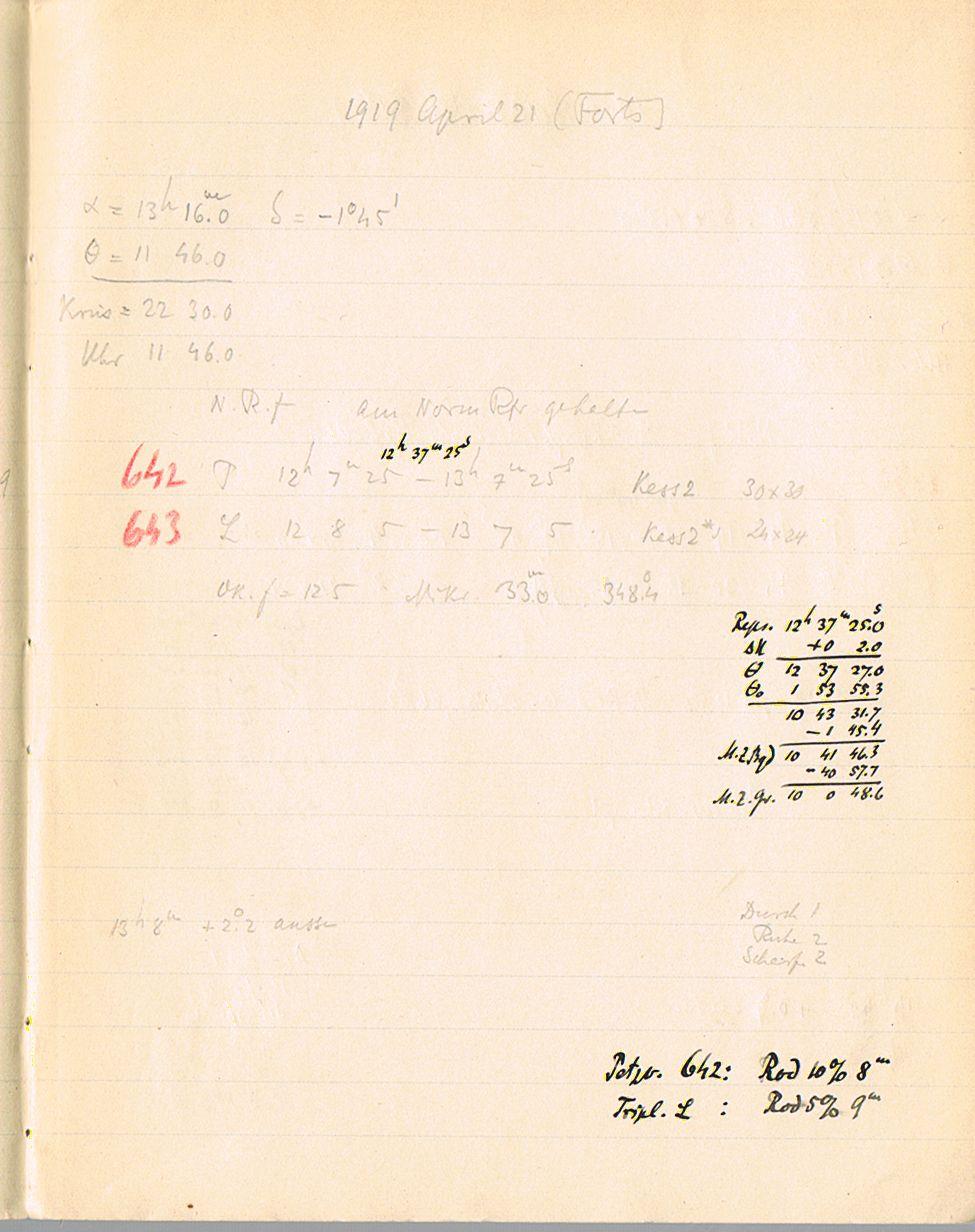 1919 April 21 (Forts)
α = 13h 16.m0 δ = -1°45'
θ = 11 46.0
Kreis = 22 30.0
Uhr 11 46.0
N.R.f am Norm Rfr gehalten
12h 37m 25s
642 P 12h 7m 25 - 13h 7m 25s Kess2 30x30
643 L 12 8 5 - 13 7 5 Kess2 24x24
OK. f = 12.5 Mikr. 33.m0 348.°4
Reps. 12h 37m 25.s0
ΔU +0 2.0
θ 12 37 27.0
θo 1 53 55.3
10 43 31.7
-1 45.4
M.Z.Bg) 10 41 46.3
-40 57.7
M.Z.Gr. 10 0 48.6
13h 8m +2.°2 aussen
Durch 1
Ruhe 2
Schärfe 2
Petzv. 642: Rod 10% 8m
Tripl. L : Rod 5% 9m